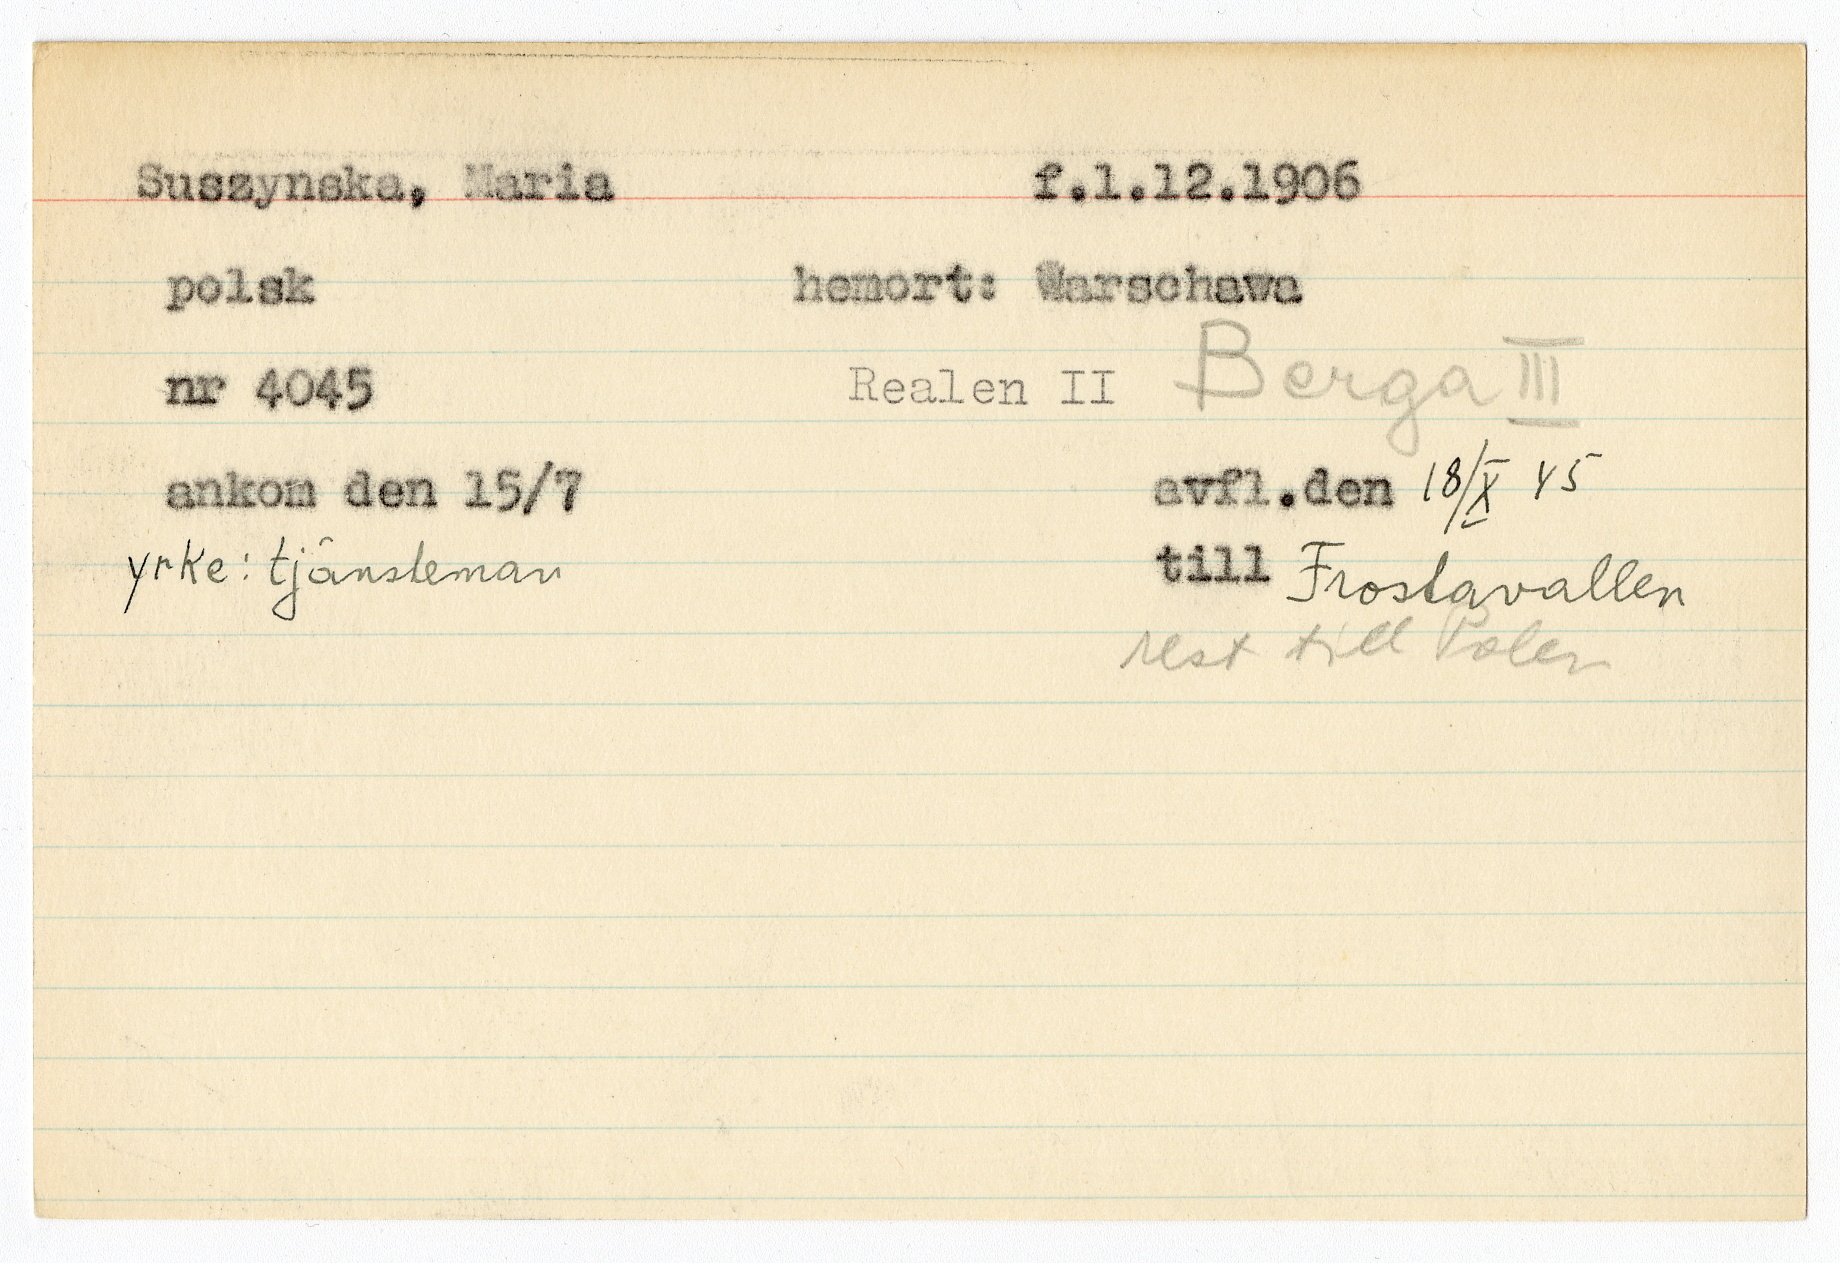 Suszynska, Maria f.1.12.1906
polsk hemort: Warschawa
nr 4045 Realen II Berga III
ankom den 15/7 avfl.den 18/X 45
yrke: tjänsteman till Frostavallen
rest till Polen